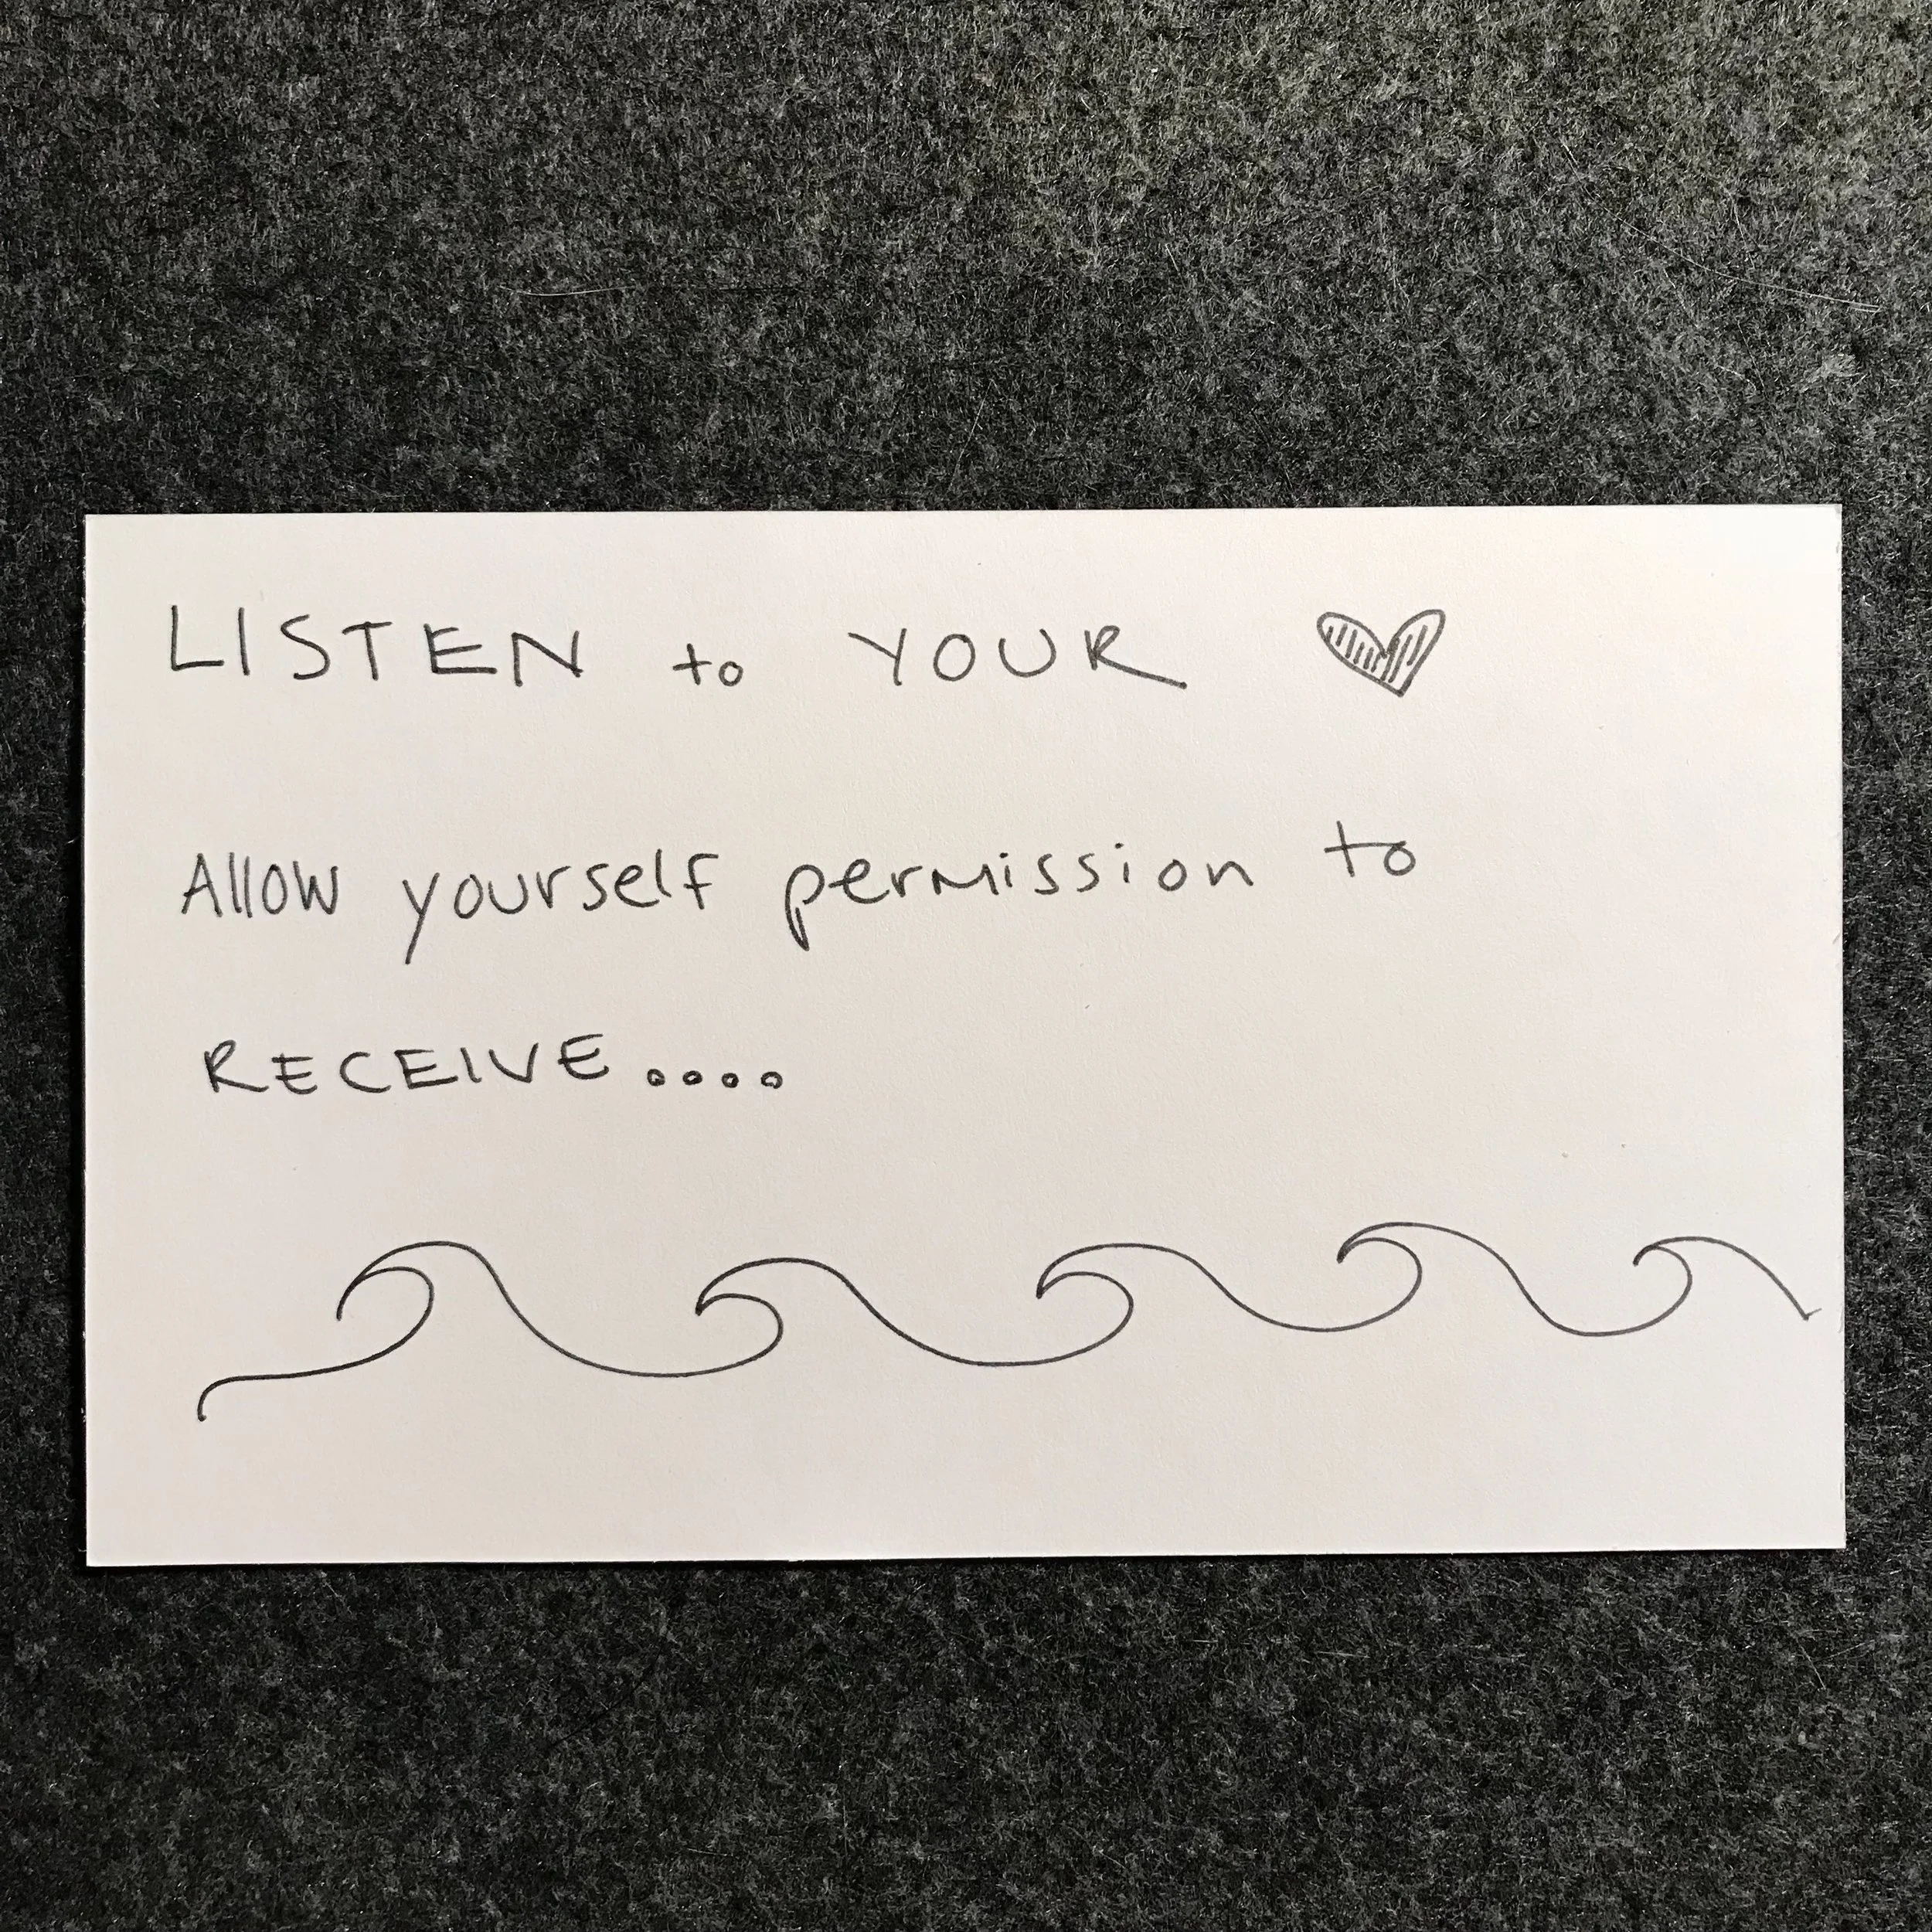 LISTEN to YOUR
Allow yourself permission to
RECEIVE....